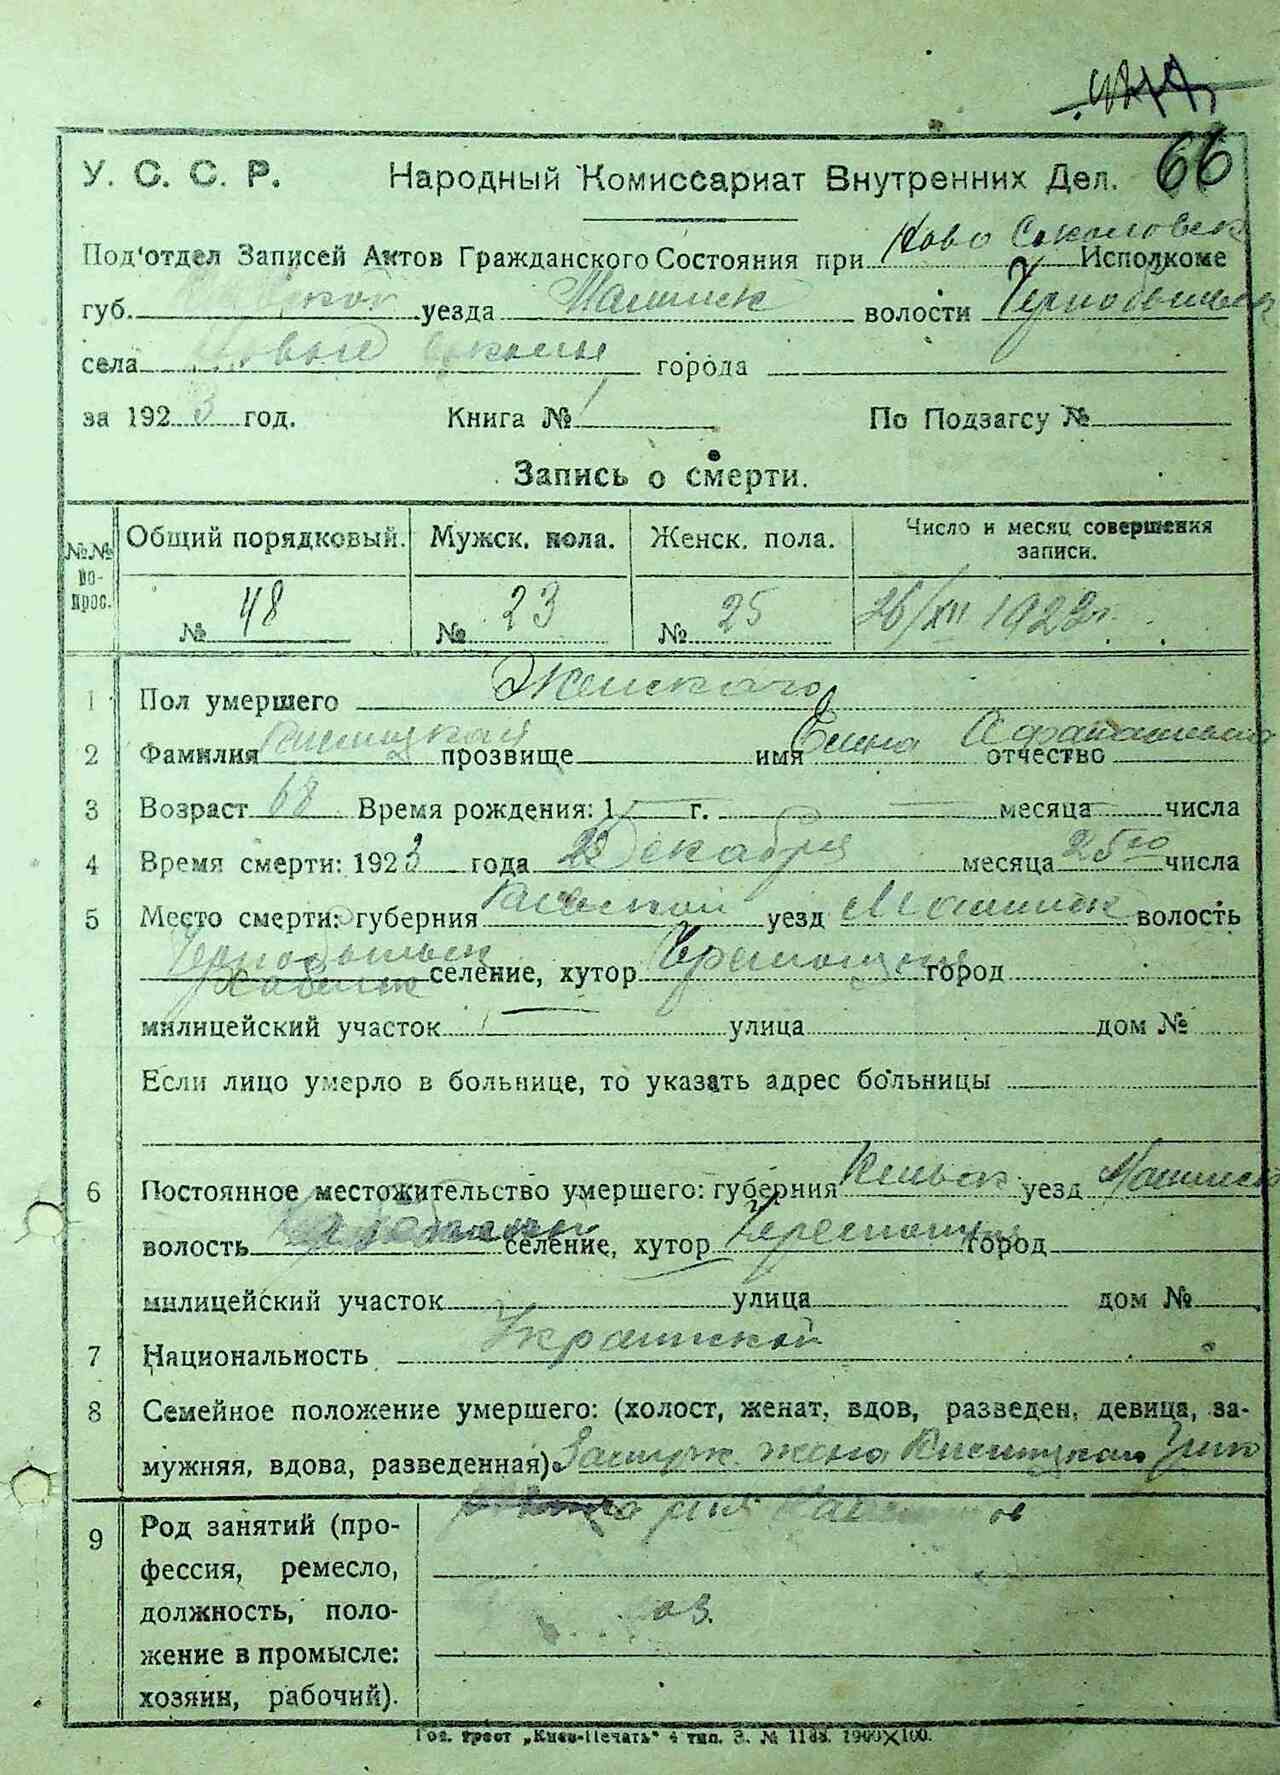 66
У. С. С. Р. Народный Комиссариат Внутренних Дел.
Под'отдел Записей Актов Гражданского Состояния при Ново Соколовск Исполкоме
губ. уезда Малинск волости Чернобыльск
села Новые Соколы города
за 1923 год. Книга № 1 По Подзагсу №
Запись о смерти.
№№ во-прос. Общий порядковый. Мужск. пола. Женск. пола. Число и месяц совершения записи.
№ 48 № 23 № 25 26/XII 1923 г.
1 Пол умершего Женского
2 Фамилия прозвище имя отчество
3 Возраст 68 Время рождения: 1 г. месяца числа
4 Время смерти: 1923 года Декабря месяца 25го числа
5 Место смерти: губерния Киевской уезд Малинск волость
Чернобыльск
селение, хутор город
милицейский участок улица дом №
Если лицо умерло в больнице, то указать адрес больницы
6 Постоянное местожительство умершего: губерния уезд Малинск
волость селение, хутор город
милицейский участок улица дом №
7 Национальность
8 Семейное положение умершего: (холост, женат, вдов, разведен, девица, за-
мужняя, вдова, разведенная) Замуж. жена
9 Род занятий (про-
фессия, ремесло,
должность, поло-
жение в промысле:
хозяин, рабочий).
Гос. трест „Киев-Печать" 4 тип. З. № 1188. 1900×100.